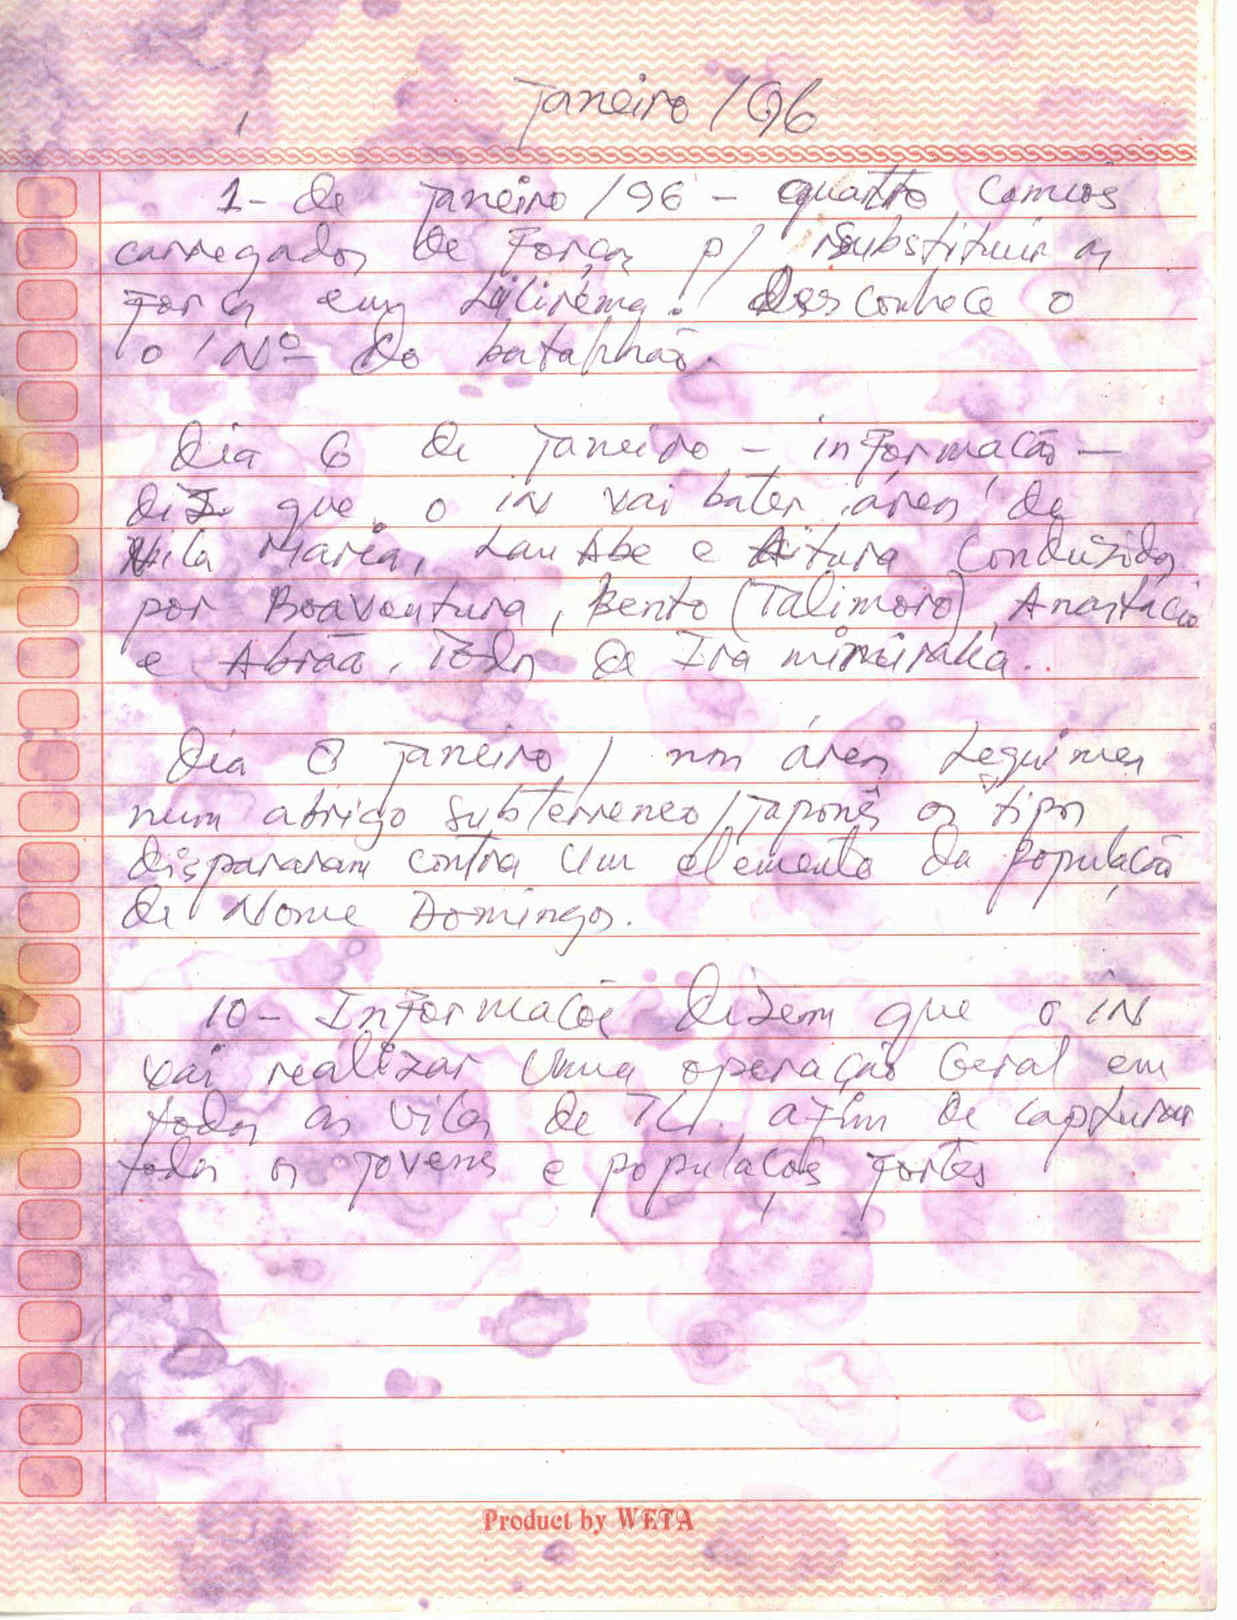 Janeiro / 96
1- de Janeiro / 96 - quatro camiōs
carregados de Força p/ substituir a
Força em . Desconhece o
o Nº do batalhão.
Dia 6 de Janeiro - informacão -
diz que o iN vai bater área de
Vila Maria, Lau Abe e conduzidos
por Boaventura, Bento (Talimoro), Anastácio
e Abrão. Todos de Ira
Dia 8 Janeiro / na área Leguimea
num abrigo subterreneo / Japonês os tipos
dispararam contra um elemento da População
de Nome Domingos.
10- Informaçōes dizem que o iN
vai realizar uma operação Geral em
todas as vilas de T.L. afim de capturar
todos os jovens e populaçōes fortes
Product by WETA